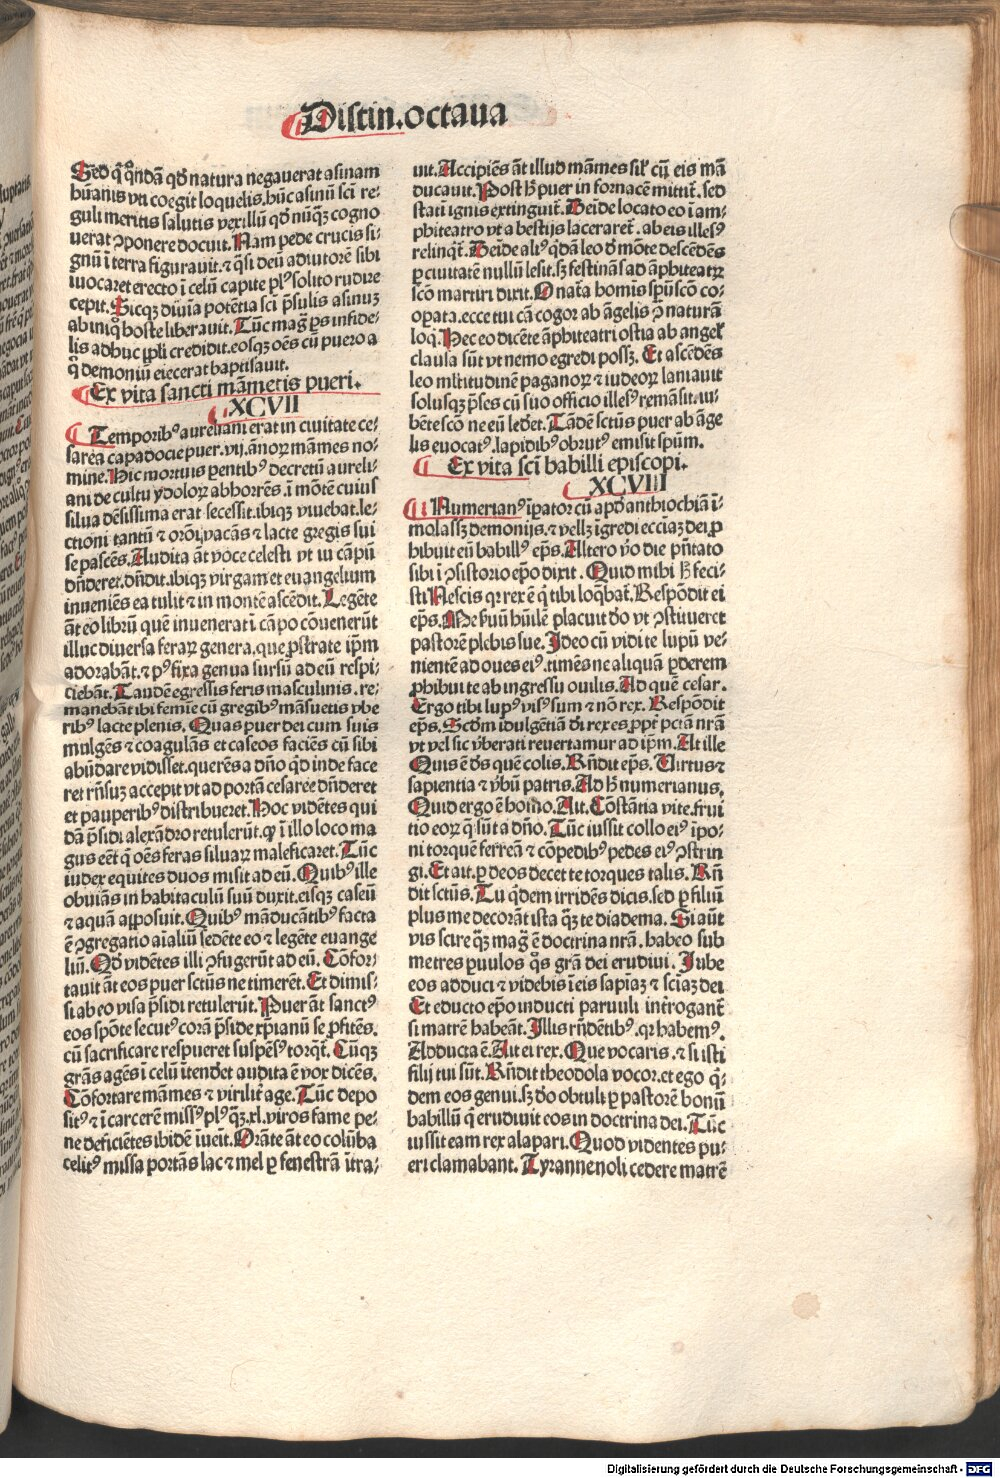 Distin.octaua
Sed qͥ qͦndā qd natura negauerat asinam
hūanis vti coegit loquelis.hūc asinū scī re⸗
guli meritis salutis vexillū qd nūqꝫ cogno
uerat ꝯponere docuit. Nam pede crucis si⸗
gnū ī terra figurauit.⁊ qͣsi deū adiutorē sibi
īuocaret erecto ī celū capite plꝰ solito rudire
cepit. Sicqꝫ diuīa potētia scī pͣsulis asinuꝫ
ab iniqͦ hoste liberauit. Tūc maḡ ps infide⸗
lis adhuc ppli credidit.eosqꝫ oēs cū puero a
qͦ demoniū eiecerat baptisauit.
Ex vita sancti māmetis pueri.
XCVII
Temporibꝰ aureliani erat in ciuitate ce⸗
sarea capadocie puer.vij.ānoꝝ māmes no⸗
mine. Hic mortuis pentibꝰ decretū aureli⸗
ani de cultu ydoloꝝ abhorrēs.ī mōte cuius
silua dēsissima erat secessit.ibiqꝫ viuebat.le⸗
ctioni tantū ⁊ orōi vacās ⁊ lacte gregis sui
se pascēs. Audita āt voce celesti vt iu cāpū
dn̄deret.dn̄dit.ibiqꝫ virgam et euangelium
inueniēs ea tulit ⁊ in montē ascēdit. Legēte
āt eo librū quē inuenerat ī cāpo cōuenerūt
illuc diuersa feraꝝ genera.que pstrate ipm
adorabāt.⁊ pꝰ fixa genua sursū ad eū respi⸗
ciebāt. Tandē egressis feris masculinis.re⸗
manebāt ibi femīe cū gregibꝰ māsuetis vbe
ribꝰ lacte plenis. Quas puer dei cum suis
mulgēs ⁊ coagulās et caseos faciēs cū sibi
abūdare vidisset.querēs a dn̄o qd inde face
ret rn̄suꝫ accepit vt ad portā cesaree dn̄deret
et pauperibꝰ distribueret. Hoc vidētes qui
dā pͣsidi alexādro retulerūt.ꝙ ī illo loco ma
gus eēt qͥ oēs feras siluaꝝ maleficaret. Tūc
iudex equites duos misit ad eū. Quibꝰ ille
obuiās in habitaculū suū duxit.eisqꝫ caseū
⁊ aquā apposuit. Quibꝰ māducātibꝰ facta
ē ꝯgregatio aīaliū sedēte eo ⁊ legēte euange
liū. Qd vidētes illi ꝯfugerūt ad eū. Cōfor⸗
tauit āt eos puer sctūs ne timerēt. Et dimis⸗
si ab eo visa pͣsidi retulerūt. Puer āt sanctꝰ
eos spōte secutꝰ corā pͣside xpianū se ꝓfitēs.
cū sacrificare respueret suspēsꝰ torqͣt. Cūqꝫ
grās agēs ī celū ītendet audita ē vox dicēs.
Cōfortare māmes ⁊ virilit age. Tūc depo
sitꝰ ⁊ ī carcerē missꝰ plꝰ qꝫ.xl.viros fame pe⸗
ne deficiētes ibidē īueīt. Orāte āt eo colūba
celitꝰ missa portās lac ⁊ mel ꝑ fenestrā ītra⸗
uit. Accipiēs āt illud māmes sil cū eis mā
ducauit. Post h̄ puer in fornacē mittit.sed
statī ignis extinguit. Deīde locato eo ī am⸗
phiteatro vt a bestijs laceraret.ab eis illesꝰ
relinqͥt. Deīde aliꝰ qͥdā leo d̄ mōte descēdēs
ꝑ ciuitatē nullū lesit.sꝫ festinās ad āphiteatꝝ
scō martiri dixit. O nata homis spūscō co⸗
opata.ecce tui cā cogor ab āgelis ꝯ naturā
loqͥ. Hec eo dicēte āphiteatri ostia ab angel
clausa sūt vt nemo egredi possꝫ. Et ascēdēs
leo mltitudinē paganoꝝ ⁊ iudeoꝝ laniauit
solusqꝫ pͣses cū suo officio illesꝰ remāsit.iu⸗
bēte scō ne eū ledet. Tādē sctūs puer ab āge
lis euocatꝰ.lapidibꝰ obrutꝰ emisit spūm.
Ex vita scī babilli episcopi.
XCVIII
Numerianꝰ īpator cū apd anthiochiā ī⸗
molassꝫ demonijs.⁊ vellꝫ īgredi ecciaꝫ dei.ꝓ
hibuit eū babillꝰ eps. Altero vo die pn̄tato
sibi ī ꝯsistorio epo dixit. Quid mihi h̄ feci⸗
sti Nescis qr rex ē qͥ tibi loqͣbat. Respōdit ei
eps. Me huū hūilē placuit do vt ꝯstitueret
pastorē plebis sue. Ideo cū vidi te lupū ve⸗
nientē ad oues eiꝰ.timēs ne aliquā pderem
ꝓhibui te ab ingressu ouilis. Ad quē cesar.
Ergo tibi lupꝰ visꝰ sum ⁊ nō rex. Respōdit
eps. Scdm īdulgētiā di rex es ꝓpt pctān nrā
vt vel sic vberati reuertamur ad ipm. At ille
Quis ē ds quē colis. Rn̄dit eps. Uirtus ⁊
sapientia ⁊ vbū patris. Ad h̄ numerianus.
Quid ergo ē homo. Ait. Cōstātia vite.frui
tio eoꝝ qͥ sūt a dn̄o. Tūc iussit collo eiꝰ īpo⸗
ni torquē ferreā ⁊ cōpedibꝰ pedes eiꝰ ꝯstrin
gi. Et ait.ꝑ deos decet te torques talis. Rn̄
dit sctūs. Tu qͥdem irridēs dicis.sed ꝑ filiū
plus me decorāt ista qꝫ te diadema. Si aūt
vis scire qꝫ maḡ ē doctrina nrā.habeo sub
me tres pauulos qͦs grā dei erudiui. Iube
eos adduci ⁊ videbis ī eis sapiaꝫ ⁊ sciaꝫ dei
Et educto epo inducti paruuli introgant
si matrē habeāt. Illis rn̄dētibꝰ.qr habemꝰ.
Adducta ē. Ait ei rex. Que vocaris.⁊ si isti
filij tui sūt. Rn̄dit theodola vocor.et ego qͥ⸗
dem eos genui.sꝫ do obtuli ꝑ pastorē bonū
babillū qͥ erudiuit eos in doctrina dei. Tūc
iussit eam rex alapari. Quod videntes pu⸗
eri clamabant. Tyranne noli cedere matrē
Digitalisierung gefördert durch die Deutsche Forschungsgemeinschaft - DFG